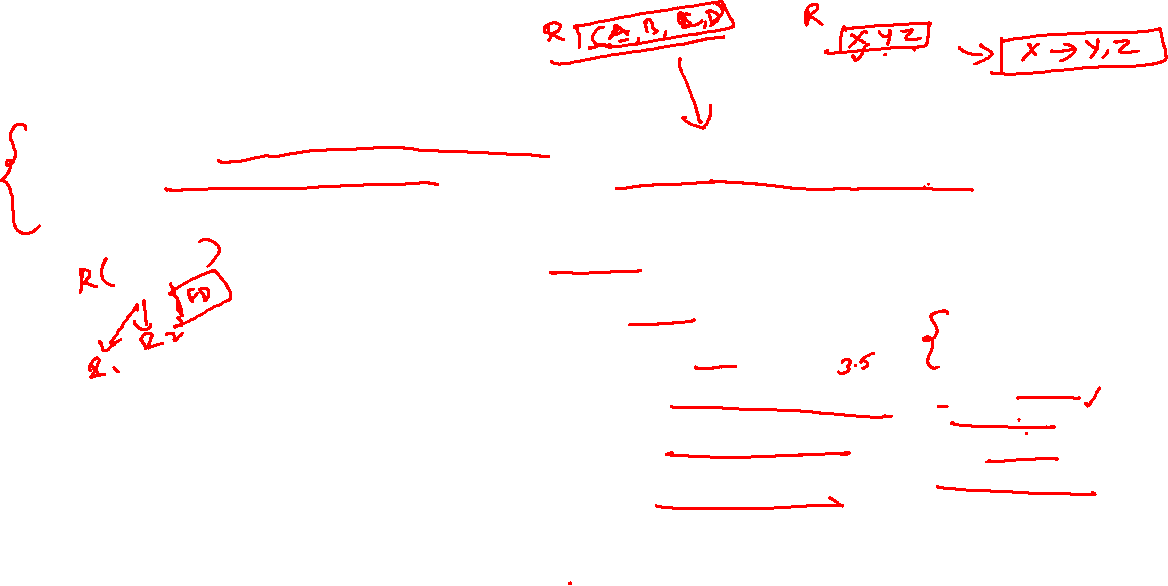 R (A, B, C, D)
R X Y Z
X → Y, Z
R( )
FD
R1 R2
3.5